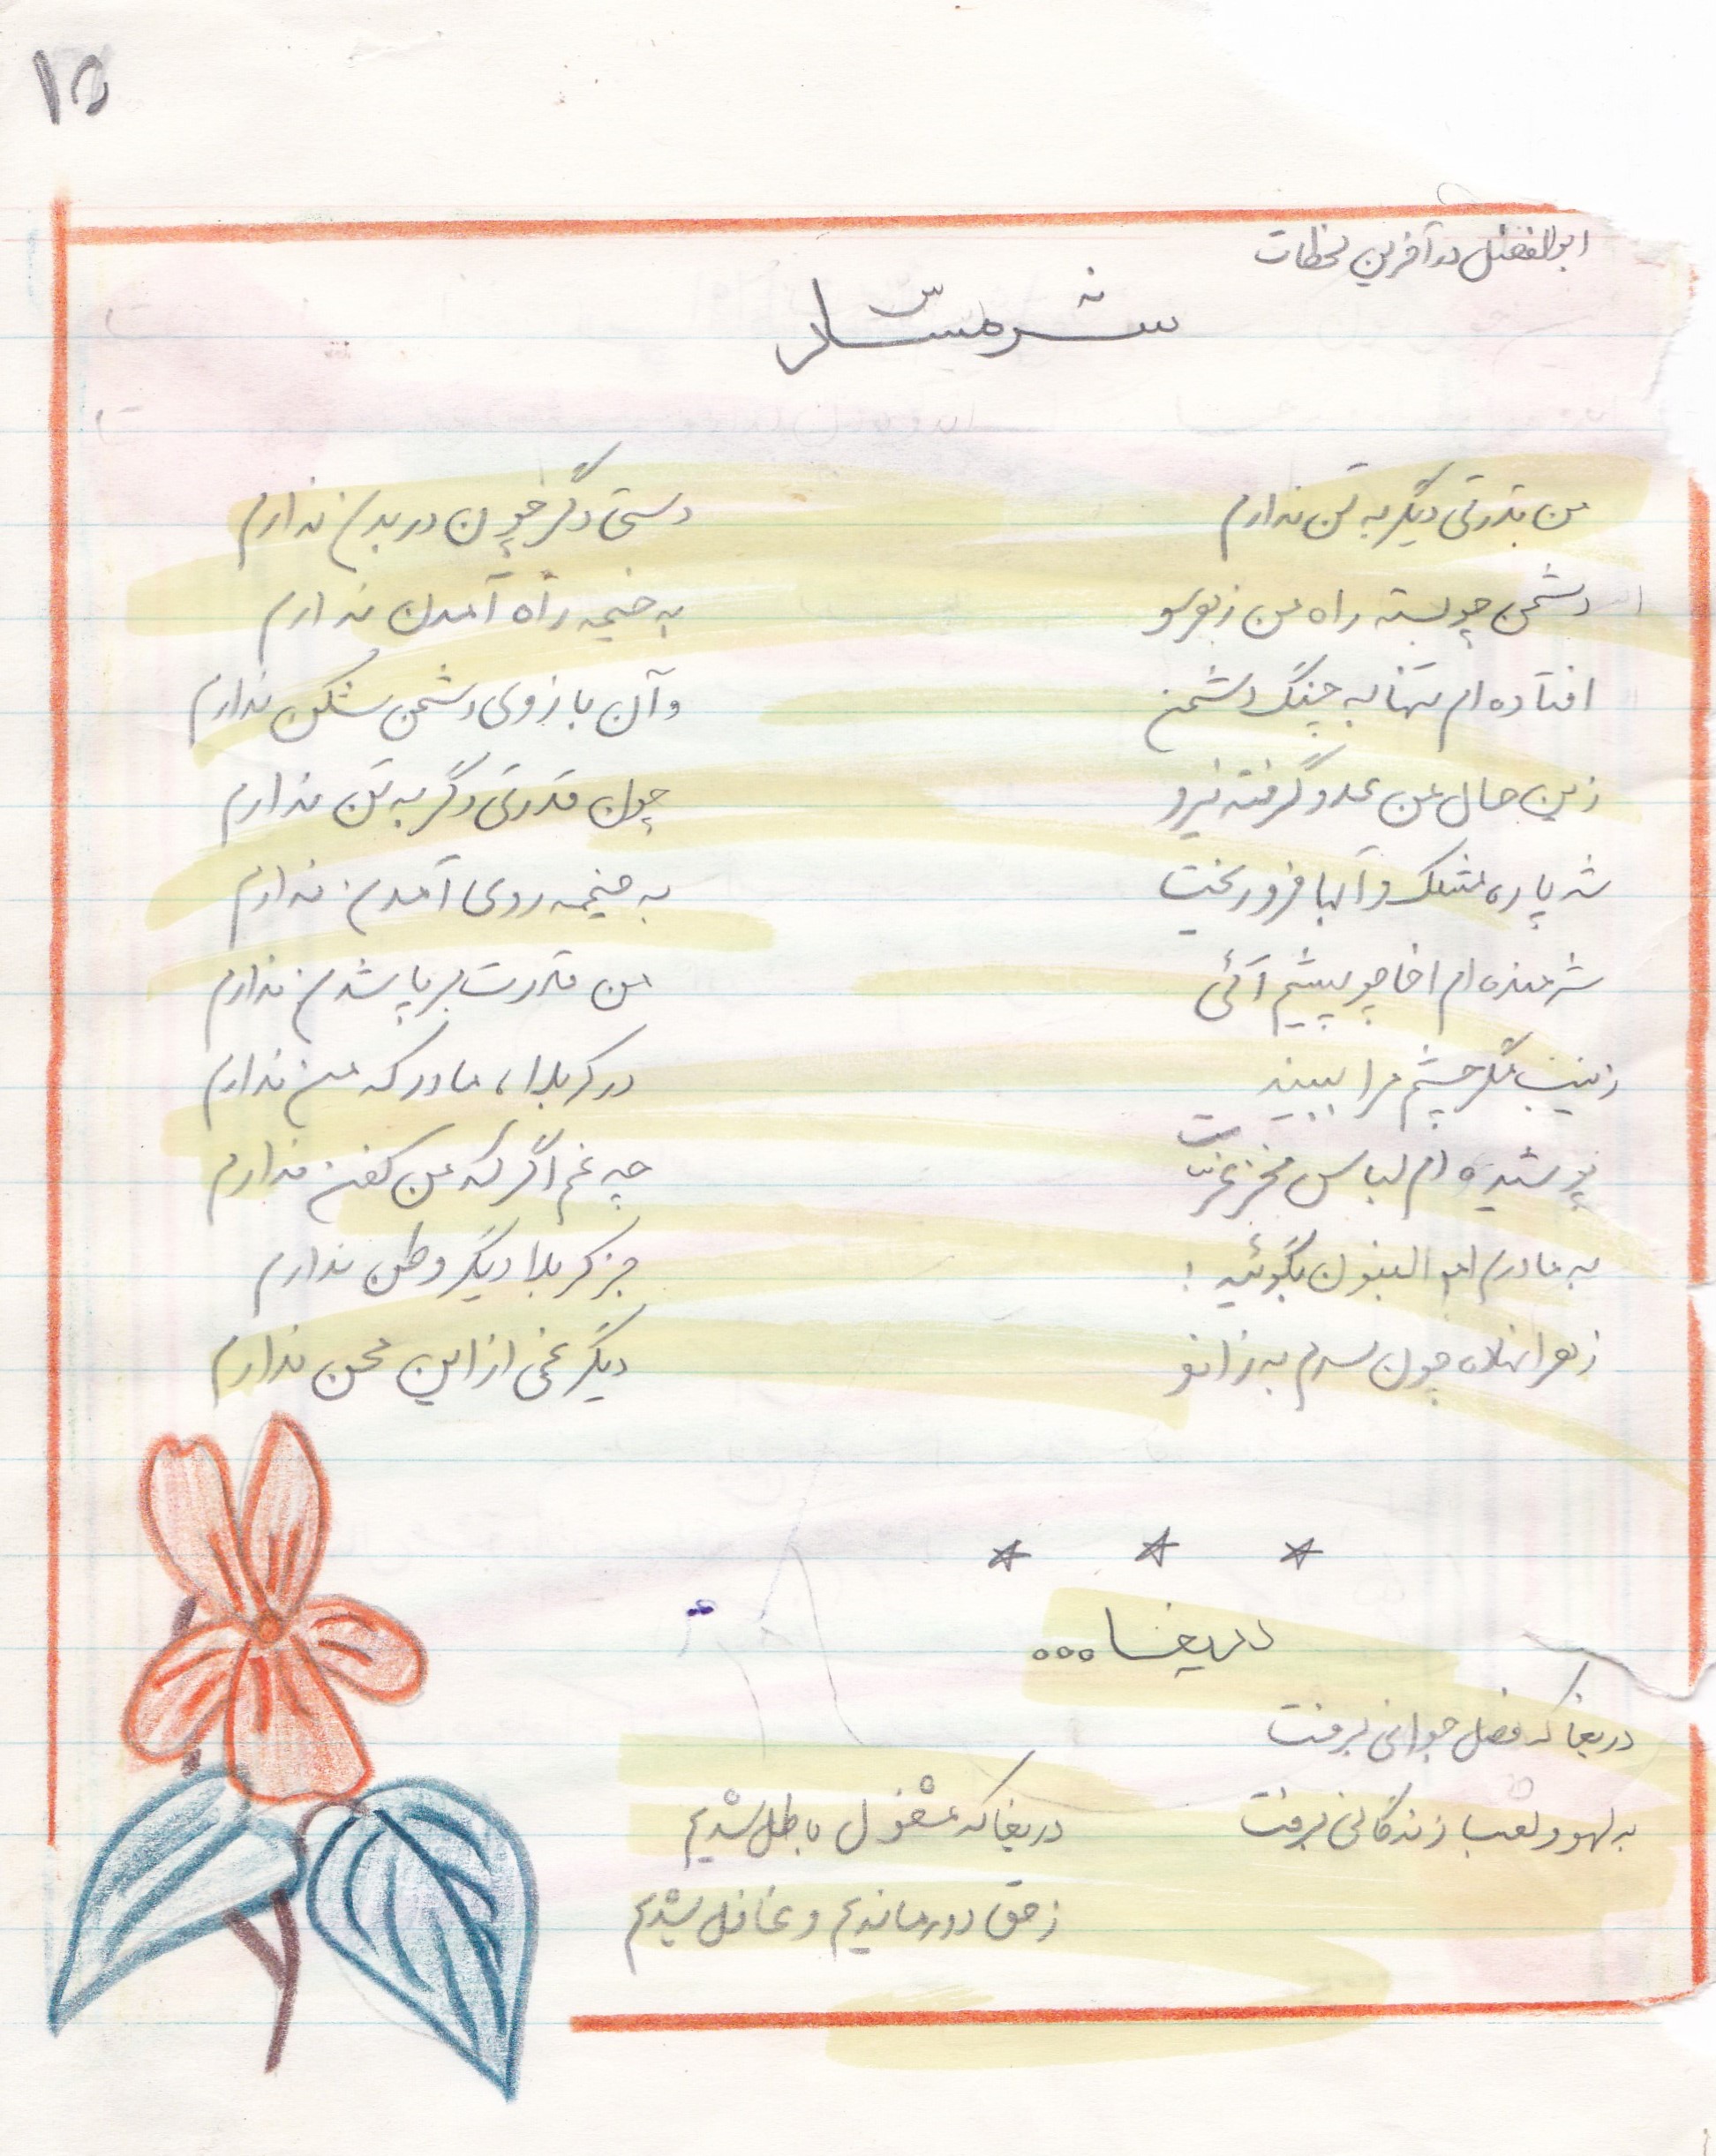 ۱۵
ابوالفضل در آخرین لحظات
شرمسار
من قدرتی دیگر به تن ندارم دستی دگر چون در بدن ندارم
دشمن چو بسته راه من زهرسو به خیمه راه آمدن ندارم
افتاده ام تنها به چنگ دشمن وآن بازوی دشمن شکن ندارم
زین حال من عدو گرفته نیرو چون قدرتی دگر به تن ندارم
شد پاره مشک و آبها فرو ریخت به خیمه روی آمدن ندارم
شرمنده ام اخا چو پیشم آئی من قدرت برپا شدن ندارم
زینب مگر چشم مرا ببیند در کربلا، مادر که من ندارم
پوشیده ام لباس فخر عزت چه غم اگر که من کفن ندارم
به مادرم ام البنون بگوئید: جز کربلا دیگر وطن ندارم
زهرا نهاده چون سرم به زانو دیگر غمی از این محن ندارم
* * *
دریغا...
دریغا که فصل جوانی برفت
به لهو و لعب زندگانی برفت
دریغا که مشغول باطل شدیم
ز حق دور ماندیم و غافل شدیم